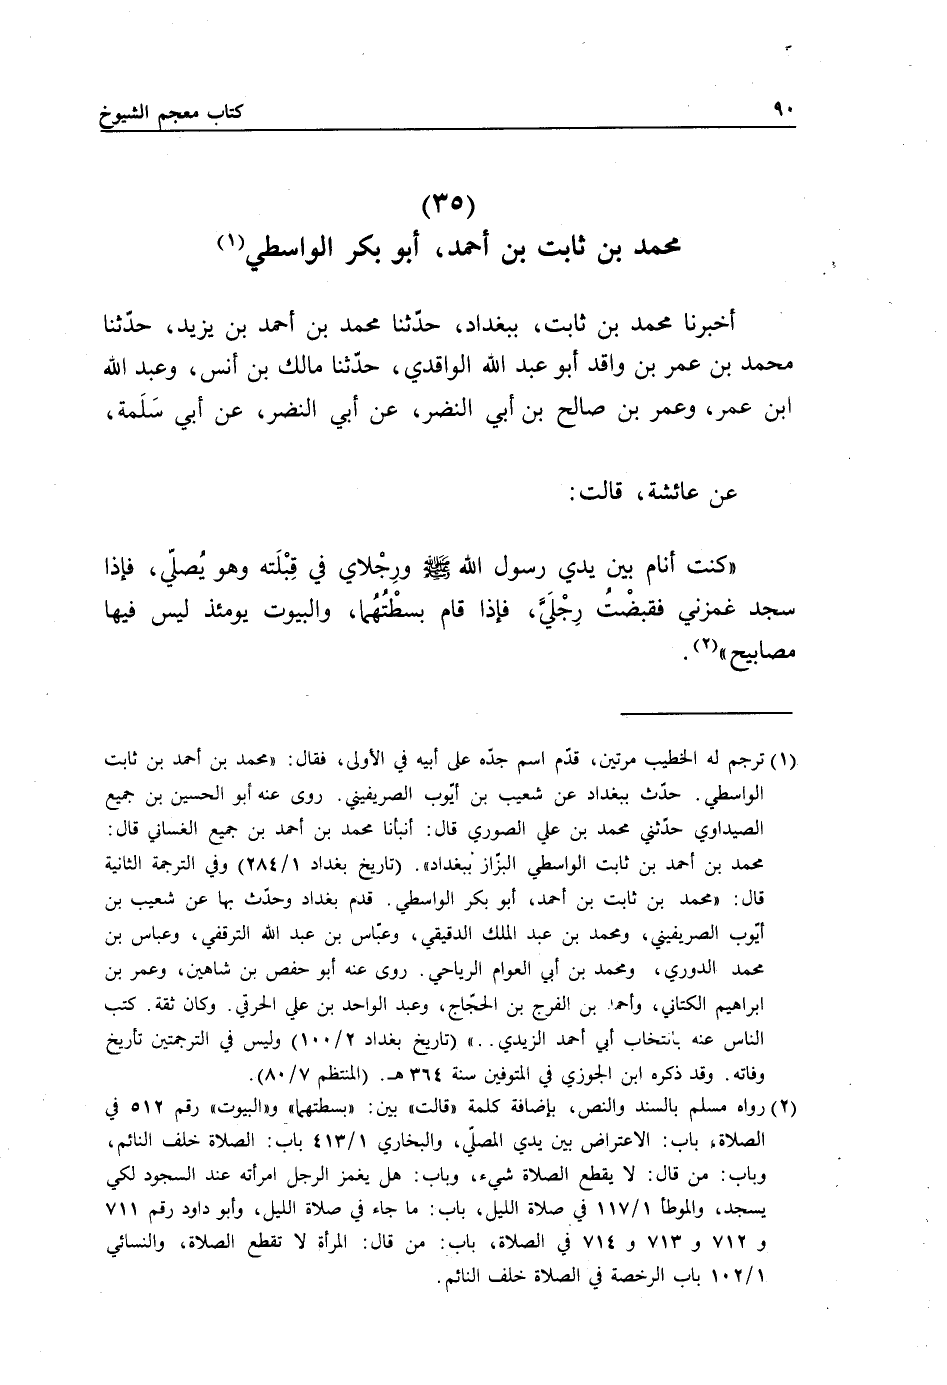 ٩٠ كتاب معجم الشيوخ
(٣٥)
محمد بن ثابت بن أحمد، أبو بكر الواسطي(١)
أخبرنا محمد بن ثابت، ببغداد، حدّثنا محمد بن أحمد بن يزيد، حدّثنا
محمد بن عمر بن واقد أبو عبد الله الواقدي، حدّثنا مالك بن أنس، وعبد الله
ابن عمر، وعمر بن صالح بن أبي النضر، عن أبي النضر، عن أبي سَلَمة،
عن عائشة، قالت:
«كنت أنام بين يدي رسول الله ﷺ ورِجْلاي في قِبْلَته وهو يُصلّي، فإذا
سجد غمزني فقبضْتُ رِجْلَيَّ، فإذا قام بسطْتُهُما، والبيوت يومئذ ليس فيها
مصابيح»(٢).
(١) ترجم له الخطيب مرتين، قدّم اسم جدّه على أبيه في الأولى، فقال: «محمد بن أحمد بن ثابت
الواسطي. حدّث ببغداد عن شعيب بن أيّوب الصريفيني. روى عنه أبو الحسين بن جميع
الصيداوي حدّثني محمد بن علي الصوري قال: أنبأنا محمد بن أحمد بن جميع الغساني قال:
محمد بن أحمد بن ثابت الواسطي البزّاز ببغداد». (تاريخ بغداد ٢٨٤/١) وفي الترجمة الثانية
قال: «محمد بن ثابت بن أحمد، أبو بكر الواسطي. قدم بغداد وحدّث بها عن شعيب بن
أيّوب الصريفيني، ومحمد بن عبد الملك الدقيقي، وعبّاس بن عبد الله الترقفي، وعباس بن
محمد الدوري، ومحمد بن أبي العوام الرياحي. روى عنه أبو حفص بن شاهين، وعمر بن
ابراهيم الكتاني، وأحمد بن الفرج بن الحجّاج، وعبد الواحد بن علي الحرقي. وكان ثقة. كتب
الناس عنه بانتخاب أبي أحمد الزيدي..» (تاريخ بغداد ١٠٠/٢) وليس في الترجمتين تأريخ
وفاته. وقد ذكره ابن الجوزي في المتوفين سنة ٣٦٤ هـ. (المنتظم ٨٠/٧).
(٢) رواه مسلم بالسند والنص، بإضافة كلمة «قالت» بين: «بسطتهما» و«البيوت» رقم ٥١٢ في
الصلاة، باب: الاعتراض بين يدي المصلّي، والبخاري ٤١٣/١ باب: الصلاة خلف النائم،
وباب: من قال: لا يقطع الصلاة شيء، وباب: هل يغمز الرجل امرأته عند السجود لكي
يسجد، والموطأ ١١٧/١ في صلاة الليل، باب: ما جاء في صلاة الليل، وأبو داود رقم ٧١١
و ٧١٢ و ٧١٣ و ٧١٤ في الصلاة، باب: من قال: المرأة لا تقطع الصلاة، والنسائي
١٠٢/١ باب الرخصة في الصلاة خلف النائم.